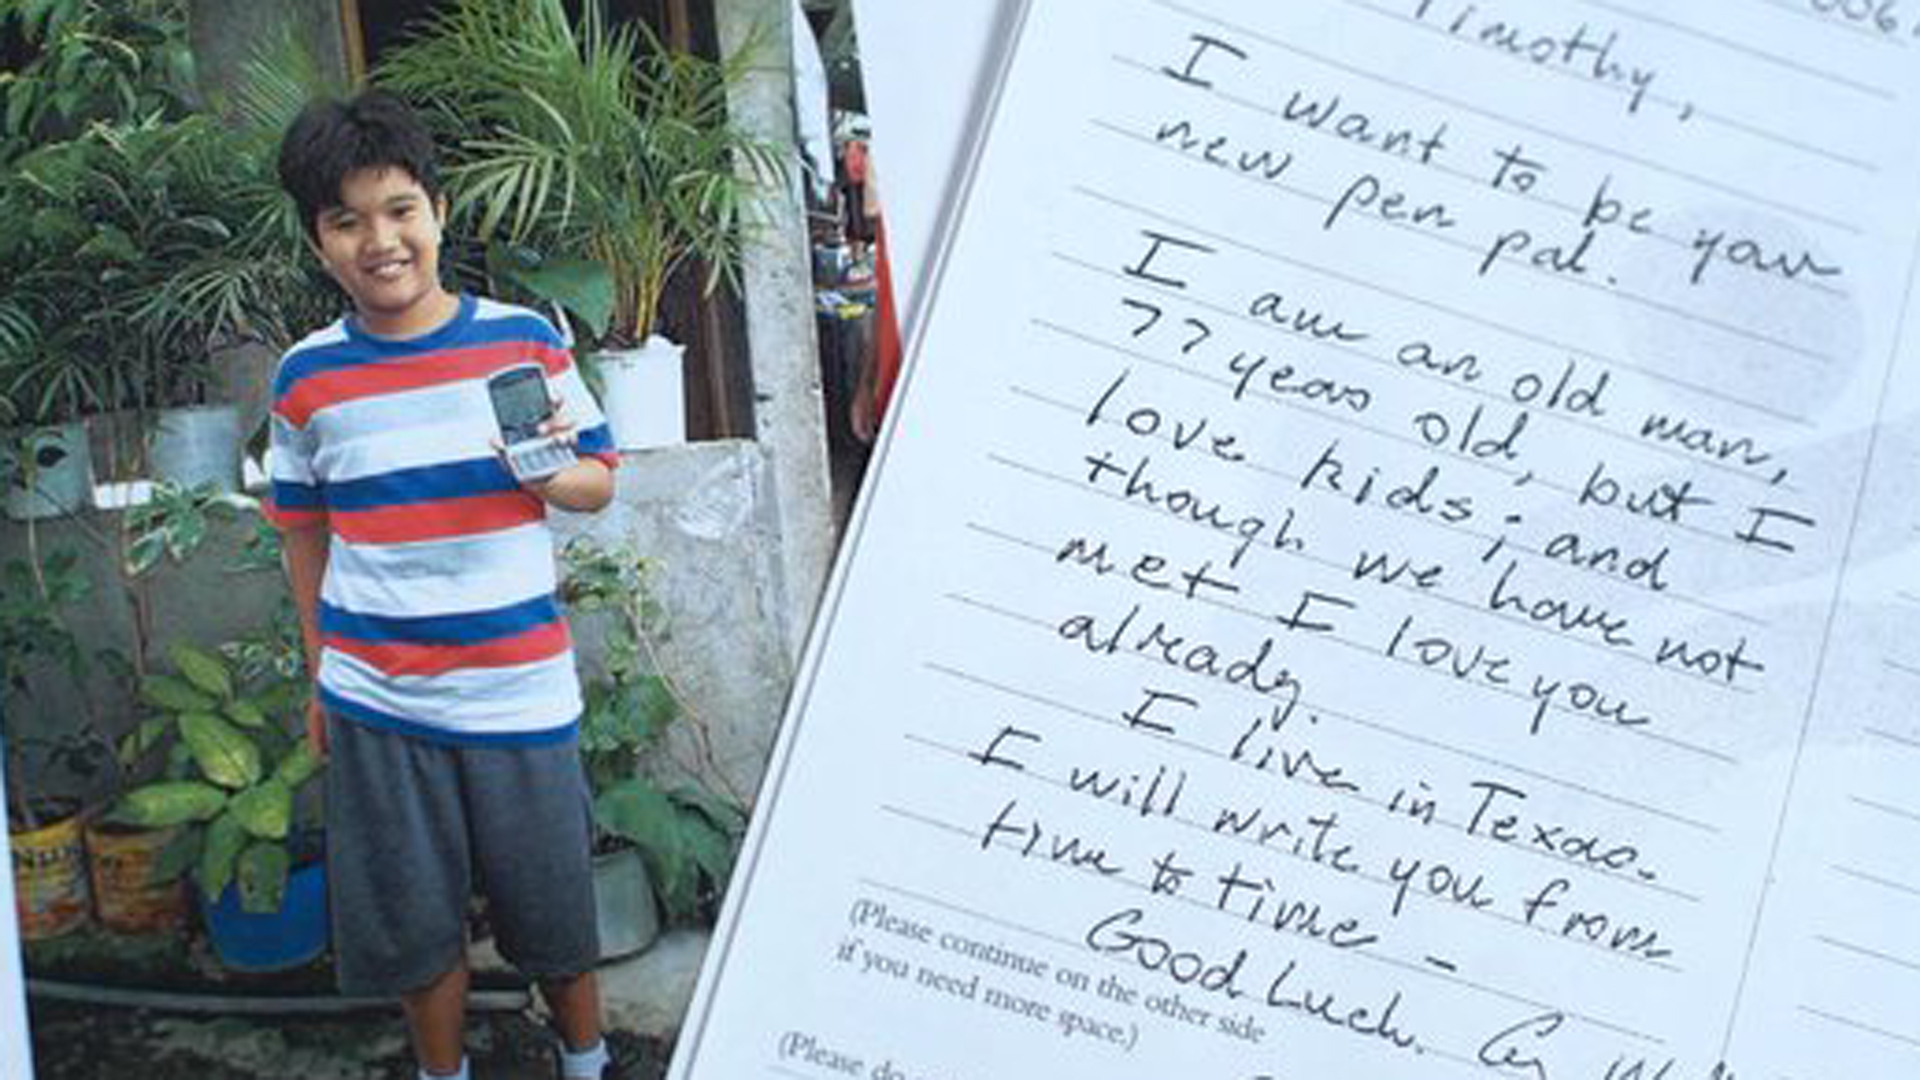 Timothy,
I want to be your
new pen pal.
I am an old man,
77 years old, but I
love kids; and
though we have not
met I love you
already.
I live in Texas.
I will write you from
time to time -
Good Luck.
(Please continue on the other side
if you need more space.)
(Please do